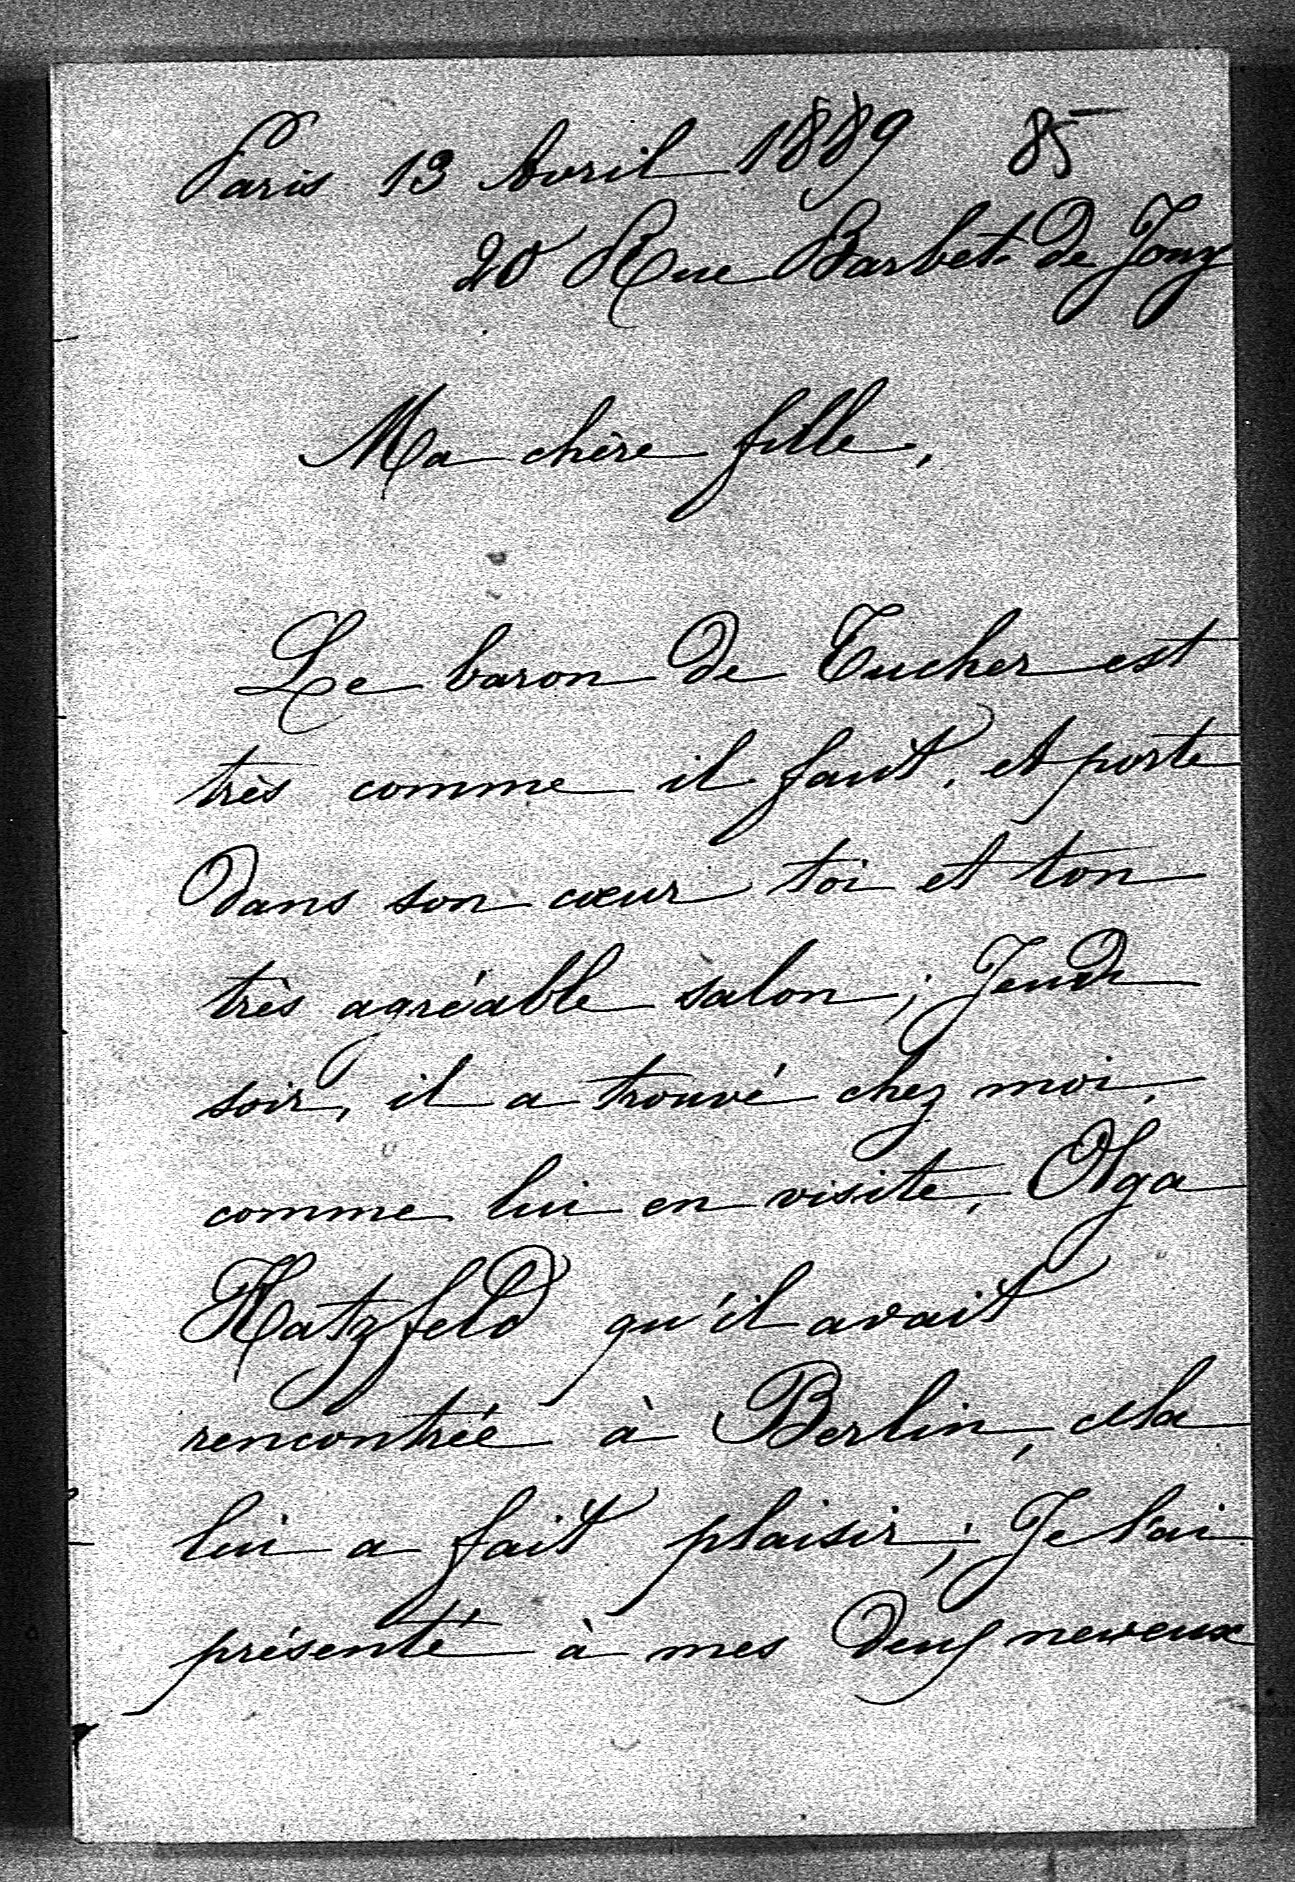 Paris 13 Avril 1889 85
20 Rue Barbet de Jouy
Ma chère fille,
Le baron de Tucher est
très comme il faut, et porte
dans son cœur toi et ton
très agréable salon ; Jeudi
soir, il a trouvé chez moi,
comme lui en visite, Olga
Hatzfeld qu'il avait
rencontrée à Berlin, cela
lui a fait plaisir ; Je l'ai
présenté à mes deux neveux